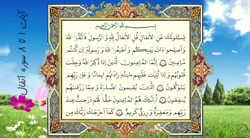 آیات ۱ تا ۸ سوره انفال
بِسْمِ اللَّهِ الرَّحْمَٰنِ الرَّحِيمِ
يَسْـَٔلُونَكَ عَنِ الْأَنْفَالِ قُلِ الْأَنْفَالُ لِلَّهِ وَالرَّسُولِ فَاتَّقُوا اللَّهَ
وَأَصْلِحُوا ذَاتَ بَيْنِكُمْ وَأَطِيعُوا اللَّهَ وَرَسُولَهُ إِنْ كُنْتُمْ
مُؤْمِنِينَ ۝ إِنَّمَا الْمُؤْمِنُونَ الَّذِينَ إِذَا ذُكِرَ اللَّهُ وَجِلَتْ
قُلُوبُهُمْ وَإِذَا تُلِيَتْ عَلَيْهِمْ ءَايَٰتُهُ زَادَتْهُمْ إِيمَٰنًا وَعَلَىٰ رَبِّهِمْ
يَتَوَكَّلُونَ ۝ الَّذِينَ يُقِيمُونَ الصَّلَوٰةَ وَمِمَّا رَزَقْنَٰهُمْ
يُنْفِقُونَ ۝ أُولَٰئِكَ هُمُ الْمُؤْمِنُونَ حَقًّا لَهُمْ دَرَجَٰتٌ عِنْدَ
رَبِّهِمْ وَمَغْفِرَةٌ وَرِزْقٌ كَرِيمٌ ۝ كَمَا أَخْرَجَكَ رَبُّكَ مِنْ